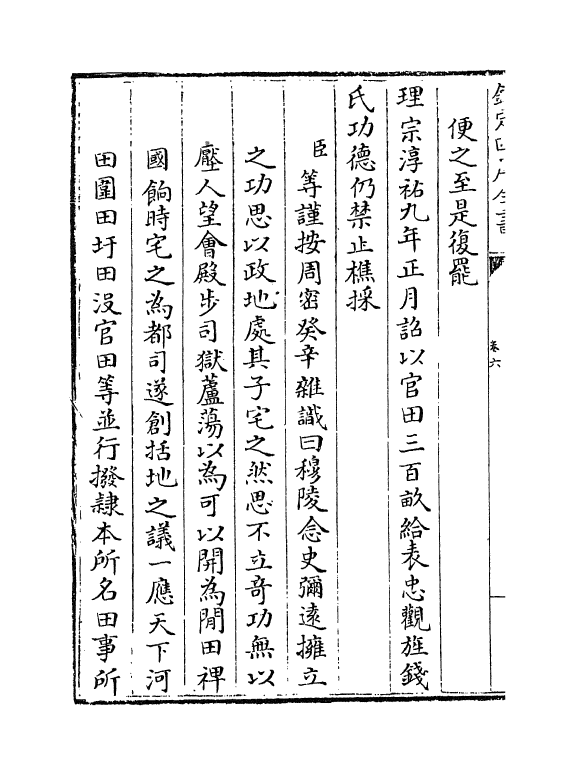 便之至是復罷
理宗淳祐九年正月詔以官田三百畝給表忠觀旌錢
氏功德仍禁止樵採
臣等謹按周密癸辛雜識曰穆陵念史彌遠擁立
之功思以政地處其子宅之然思不立奇功無以
壓人望會殿步司獄蘆蕩以為可以開為閒田裨
國餉時宅之為都司遂創括地之議一應天下河
田圍田圩田沒官田等並行撥隸本所名田事所
卷六